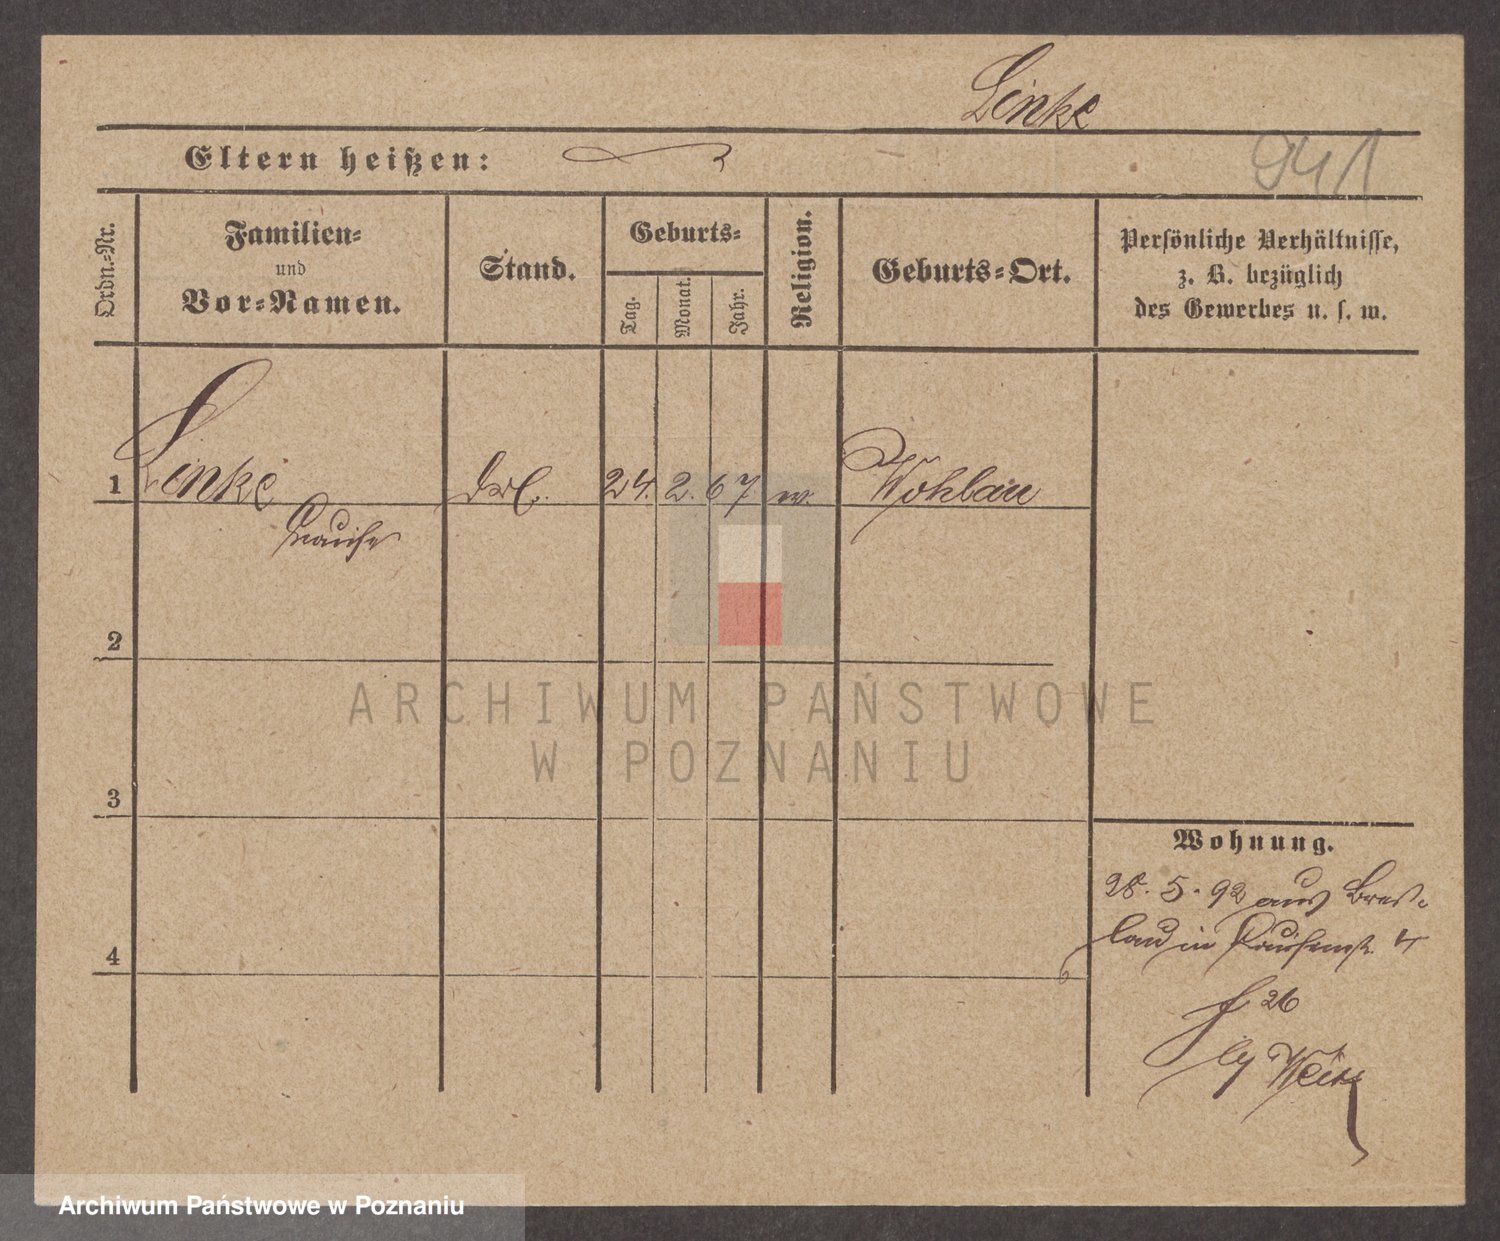 Linke
Eltern heißen:
941
Ordn.-Nr.
Familien-
und
Vor-Namen.
Stand.
Geburts-
Tag.
Monat.
Jahr.
Religion.
Geburts-Ort.
Persönliche Verhältnisse,
z. B. bezüglich
des Gewerbes u. s. w.
1 Linke 24. 2. 67 Wohlau
Louise
2
3
4
Wohnung.
28. 5. 92 aus Bres-
lau in 4
26
ARCHIWUM PAŃSTWOWE
W POZNANIU
Archiwum Państwowe w Poznaniu